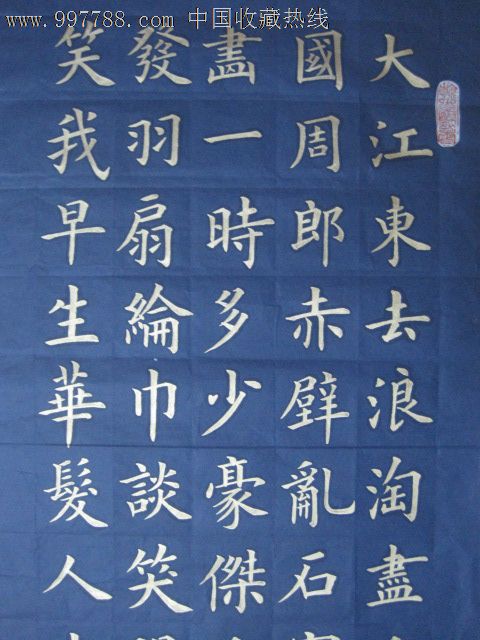 www.997788.com 中国收藏热线
大江東去浪淘盡
國周郎赤壁亂石
畫一時多少豪傑
發羽扇綸巾談笑
笑我早生華髮人